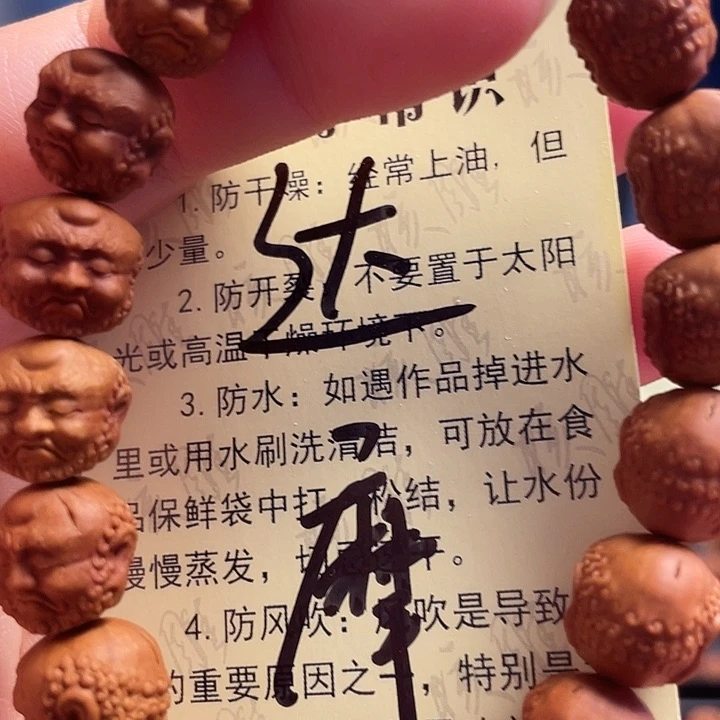 常识
1. 防干燥：经常上油，但
少量。
2. 防开裂 不要置于太阳
光或高温干燥环境下。
3. 防水：如遇作品掉进水
里或用水刷洗清洁，可放在食
品保鲜袋中打 松结，让水份
慢慢蒸发，
干。
4. 防风吹：风吹是导致
的重要原因之一，特别是
达
摩